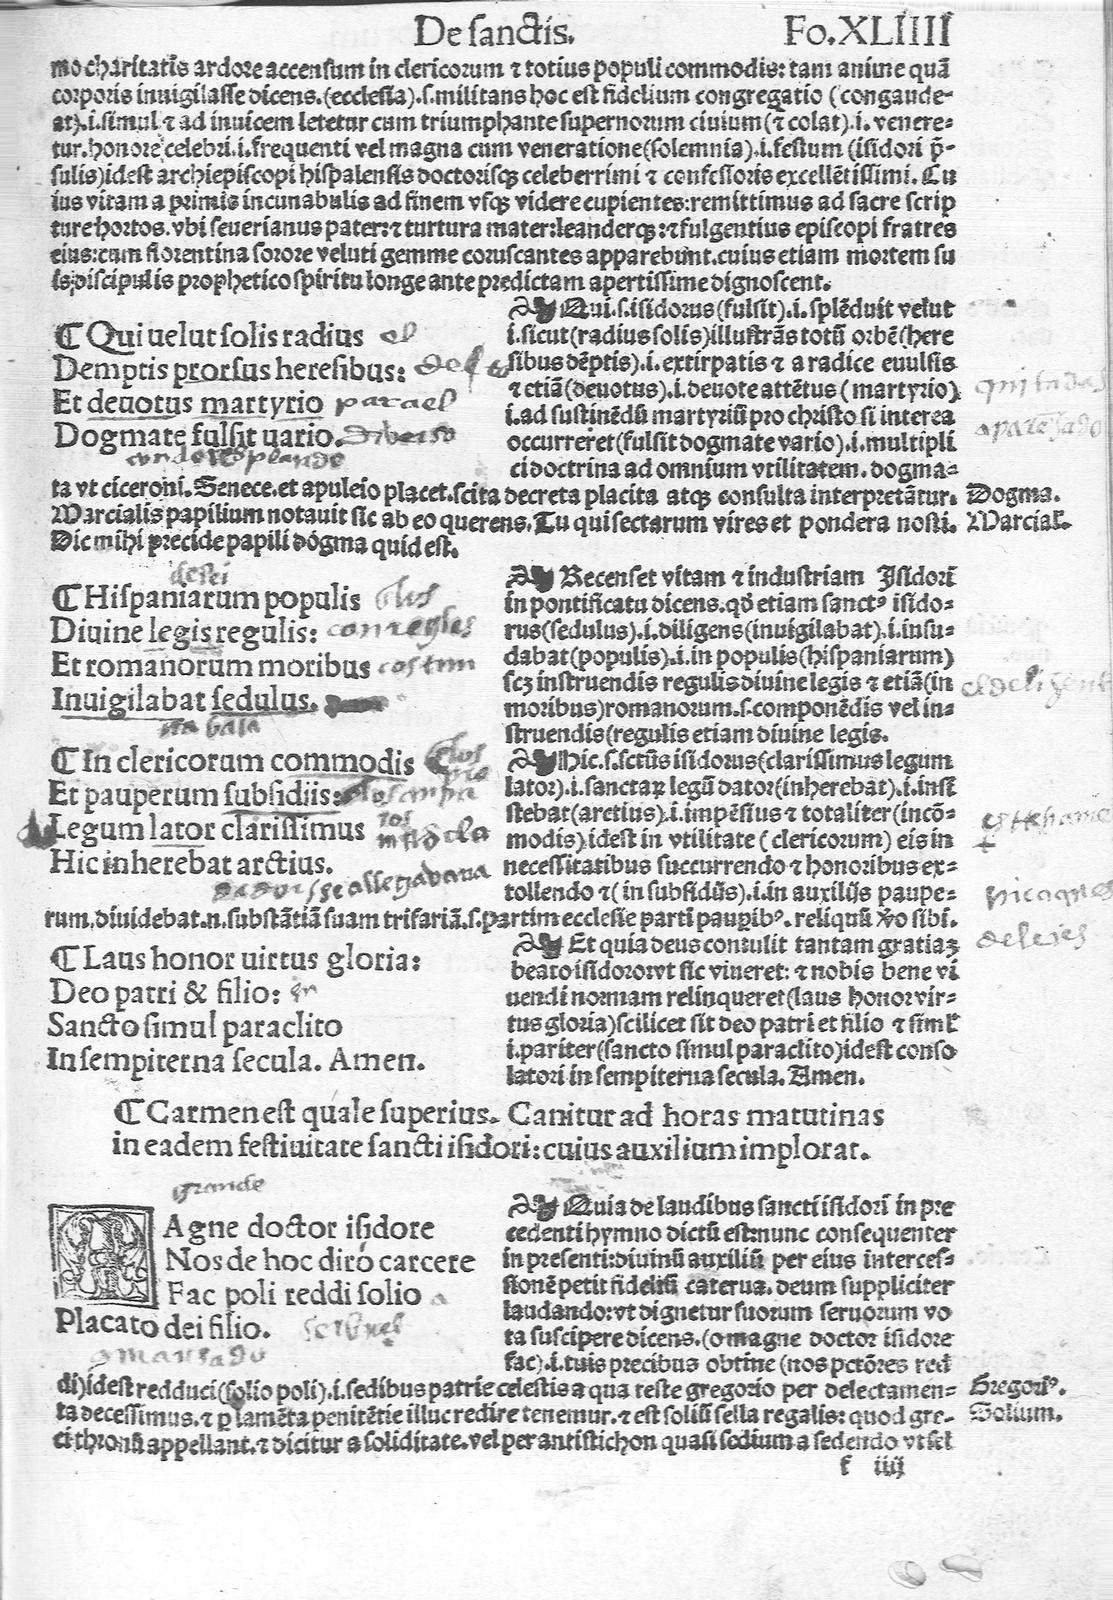 De sanctis. Fo.XLIIII
mo charitatis ardore accensum in clericorum ⁊ totius populi commodis: tam anime quã
corporis inuigilasse dicens.(ecclesia).s.militans hoc est fidelium congregatio (congaude-
at).i.simul ⁊ ad inuicem letetur cum triumphante supernorum ciuium(⁊ colat).i. venere-
tur.honore celebri.i.frequenti vel magna cum veneratione(solemnia).i.festum (isidori p̃-
sulis)idest archiepiscopi hispalensis doctorisqꝫ celeberrimi ⁊ confessoris excellẽtissimi. Cu
ius vitam a primis incunabulis ad finem vsqꝫ videre cupientes:remittimus ad sacre scrip
ture hortos. vbi seuerianus pater:⁊ turtura mater:leanderqꝫ:⁊ fulgentius episcopi fratres
eius:cum florentina sorore veluti gemme coruscantes apparebunt.cuius etiam mortem su
is discipulis prophetico spiritu longe ante predictam apertissime dignoscent.
¶ Qui uelut solis radius el
Demptis prorsus heresibus:
Et deuotus martyrio para el
Dogmate fulsit uario. diverso
Qui.s.isidorus(fulsit).i. splẽduit velut
i.sicut(radius solis)illustrãs totũ orbẽ(here
sibus dẽptis).i.extirpatis ⁊ a radice euulsis
⁊ etiã(deuotus).i.deuote attẽtus (martyrio)
i.ad sustinẽdũ martyriũ pro christo si interea
occurreret(fulsit dogmate vario).i.multipli
ci doctrina ad omnium vtilitatem. dogma-
ta vt ciceroni. Senece.et apuleio placet.scita decreta placita atqꝫ consulta interpretãtur. Dogma.
Marcialis papilium notauit sic ab eo querens. Tu qui sectarum vires et pondera nosti. Marcial.
Dic mihi precide papili dogma quid est.
¶ Hispaniarum populis
Diuine legis regulis:
Et romanorum moribus
Inuigilabat sedulus.
Recenset vitam ⁊ industriam Isidori
in pontificatu dicens.qđ etiam sanctꝰ isido-
rus(sedulus).i.diligens(inuigilabat).i.insu-
dabat(populis).i.in populis(hispaniarum)
scꝫ instruendis regulis diuine legis ⁊ etiã(in
moribus)romanorum.s.componẽdis vel in-
struendis(regulis etiam diuine legis.
¶ In clericorum commodis
Et pauperum subsidiis:
Legum lator clarissimus
Hic inherebat arctius.
Hic.s.sctũs isidorus(clarissimus legum
lator).i.sanctaꝝ legũ dator(inherebat).i.insi
stebat(arctius).i.impẽsius ⁊ totaliter(incõ-
modis).idest in vtilitate (clericorum) eis in
necessitatibus succurrendo ⁊ honoribus ex-
tollendo ⁊( in subsidiis).i.in auxilijs paupe-
rum.diuidebat.n.substãtiã suam trifariã.s.partim ecclesie parti paupibꝰ. reliquũ ṽo sibi.
¶ Laus honor uirtus gloria:
Deo patri & filio:
Sancto simul paraclito
In sempiterna secula. Amen.
Et quia deus contulit tantam gratiaꝫ
beato isidoro:vt sic viueret: ⁊ nobis bene vi
uendi normam relinqueret(laus honor vir-
tus gloria)scilicet sit deo patri et filio ⁊ simĩ
i.pariter(sancto simul paraclito)idest conso
latori in sempiterna secula. Amen.
¶ Carmen est quale superius. Canitur ad horas matutinas
in eadem festiuitate sancti isidori: cuius auxilium implorat.
grande
MAgne doctor isidore
Nos de hoc diro carcere
Fac poli reddi solio
Placato dei filio.
Quia de laudibus sancti isidori in pre
cedenti hymno dictũ est:nunc consequenter
in presenti:diuinũ auxiliũ per eius interces-
sionẽ petit fideliũ caterua. deum suppliciter
laudando:vt dignetur suorum seruorum vo
ta suscipere dicens.(o magne doctor isidore
fac).i.tuis precibus obtine (nos pctõres red
di)idest redduci(solio poli).i.sedibus patrie celestis a qua teste gregorio per delectamen- Gregoriꝰ.
ta decessimus.⁊ ꝑ lamẽta penitẽtie illuc redire tenemur.⁊ est soliũ sella regalis: quod gre- Solium.
ci thronũ appellant.⁊ dicitur a soliditate.vel per antistichon quasi sodium a sedendo vt sel
f iiij